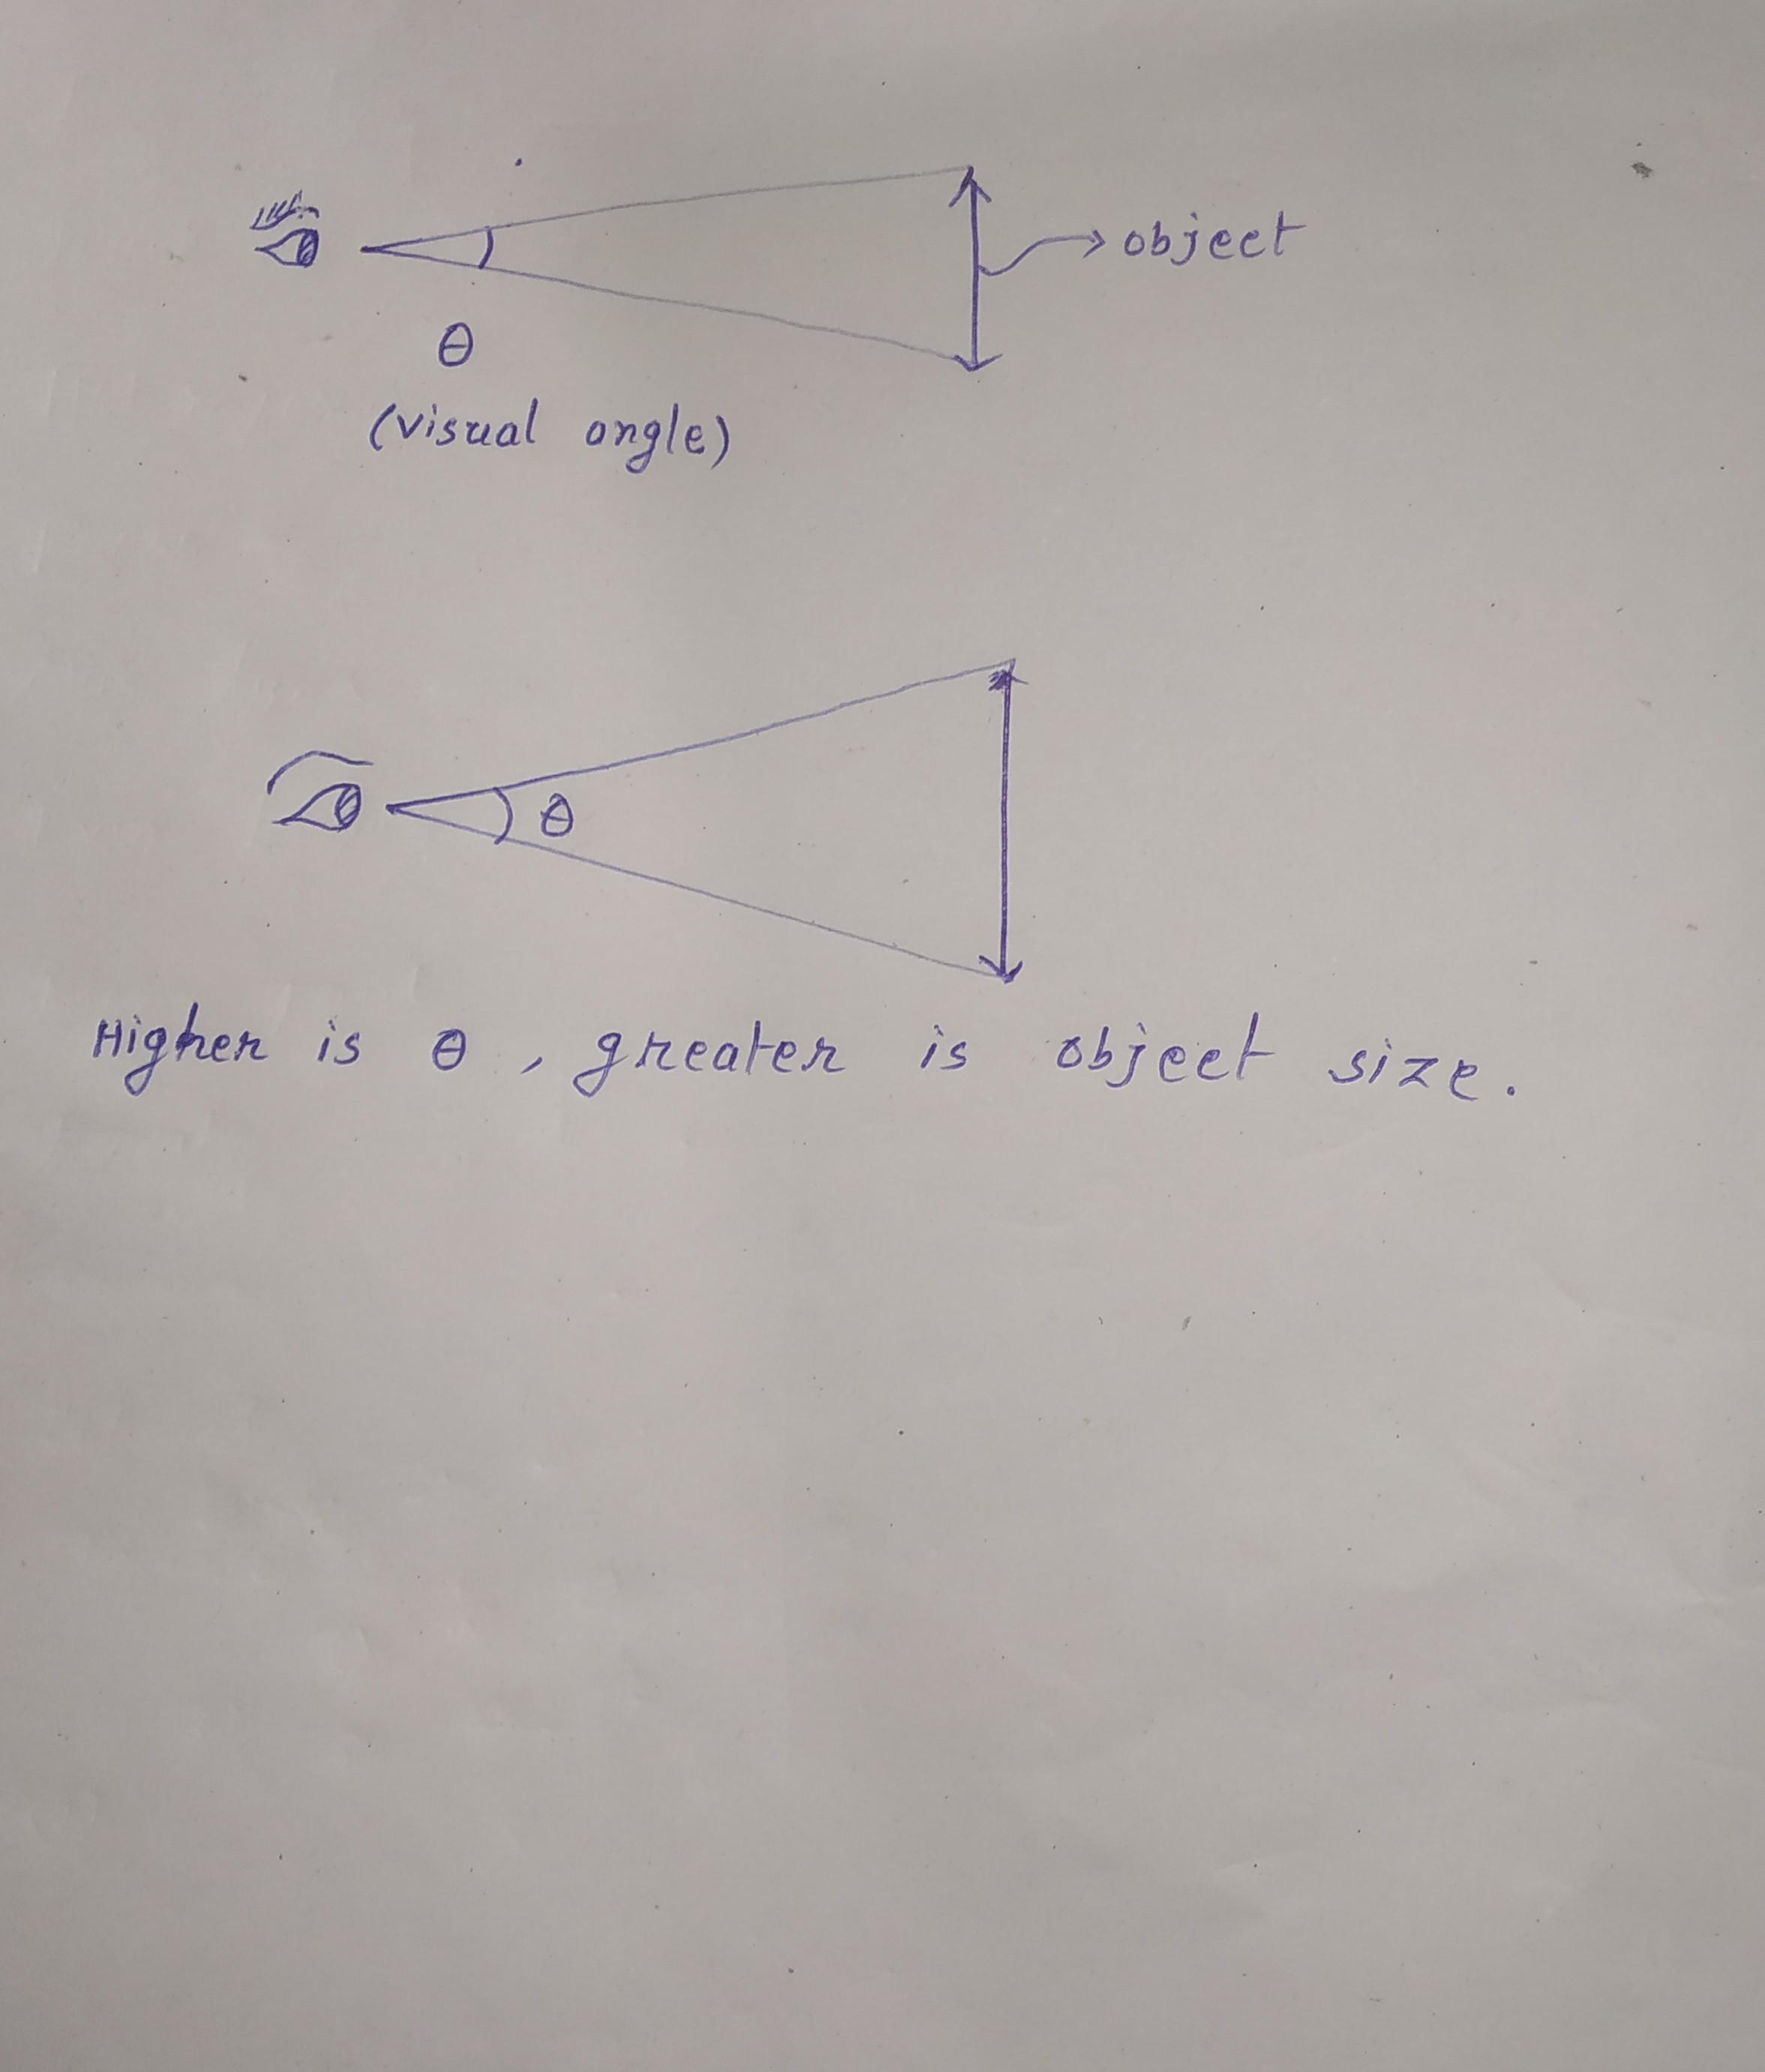 object
θ
(visual angle)
θ
Higher is θ, greater is object size.